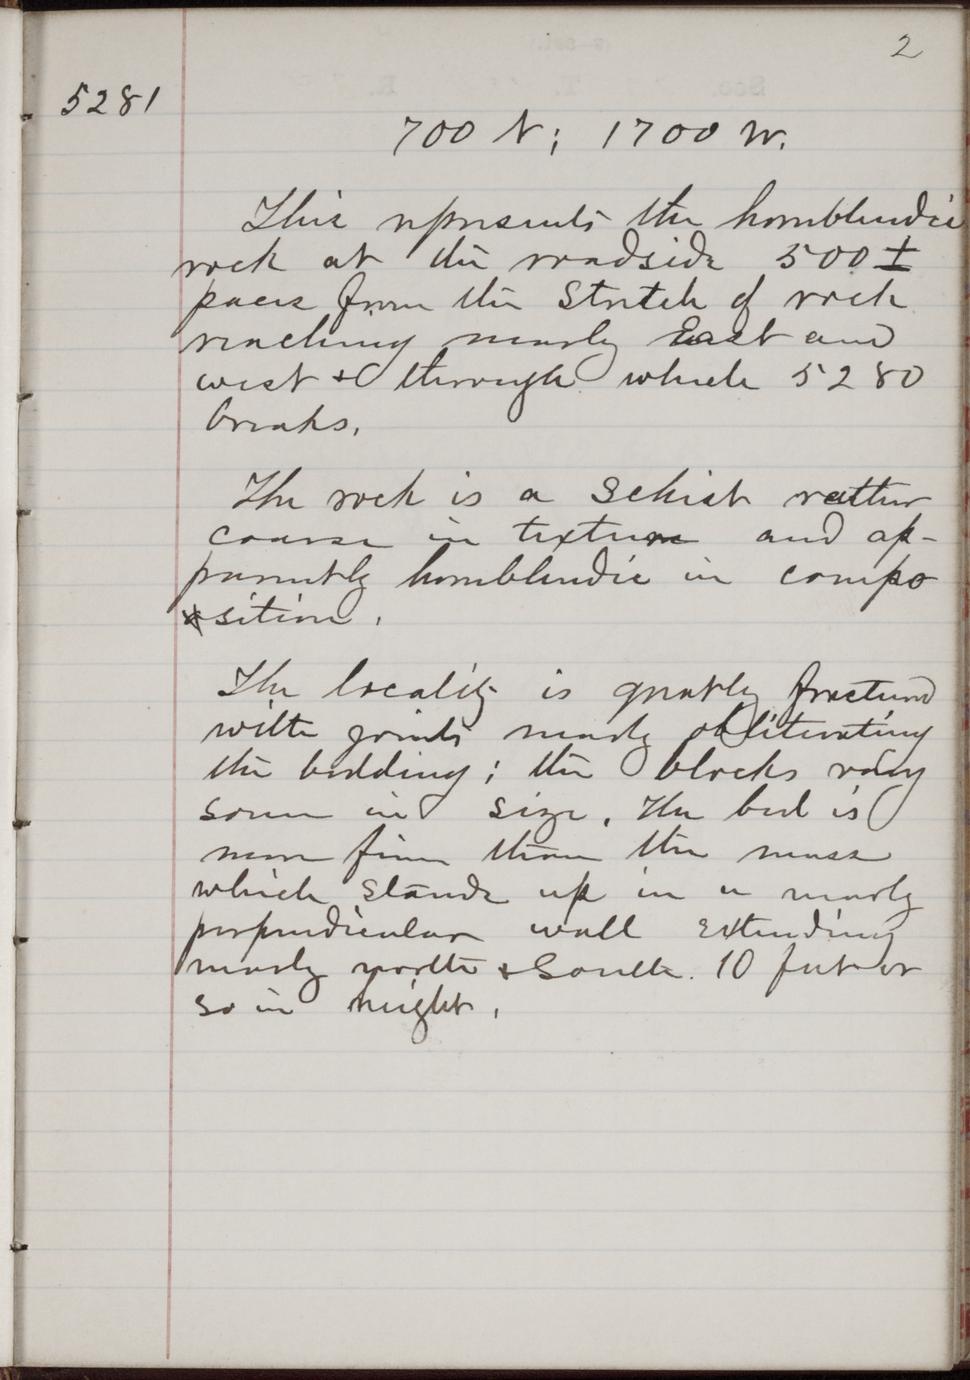 2
5281
700 N; 1700 W.
This represents the hornblendic
rock at the roadside 500 ±
paces from the stretch of rock
reaching nearly East and
west & through which 5280
breaks.
The rock is a schist rather
coarse in texture and ap-
parently hornblendic in compo
sition.
The locality is greatly fractured
with joints nearly obliterating
the bedding; the blocks vary
some in size. The bed is
more firm than the mass
which stands up in a nearly
perpendicular wall extending
nearly north & south. 10 feet or
so in height.